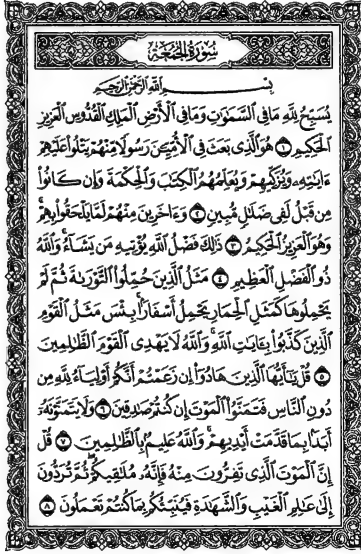 سُورَةُ الجُمُعَةِ
بِسْمِ اللَّهِ الرَّحْمَٰنِ الرَّحِيمِ
يُسَبِّحُ لِلَّهِ مَا فِي السَّمَٰوَٰتِ وَمَا فِي الْأَرْضِ الْمَلِكِ الْقُدُّوسِ الْعَزِيزِ
الْحَكِيمِ ١ هُوَ الَّذِي بَعَثَ فِي الْأُمِّيِّينَ رَسُولًا مِّنْهُمْ يَتْلُوا عَلَيْهِمْ
ءَايَٰتِهِ وَيُزَكِّيهِمْ وَيُعَلِّمُهُمُ الْكِتَٰبَ وَالْحِكْمَةَ وَإِن كَانُوا
مِن قَبْلُ لَفِي ضَلَٰلٍ مُّبِينٍ ٢ وَءَاخَرِينَ مِنْهُمْ لَمَّا يَلْحَقُوا بِهِمْ
وَهُوَ الْعَزِيزُ الْحَكِيمُ ٣ ذَٰلِكَ فَضْلُ اللَّهِ يُؤْتِيهِ مَن يَشَاءُ وَاللَّهُ
ذُو الْفَضْلِ الْعَظِيمِ ٤ مَثَلُ الَّذِينَ حُمِّلُوا التَّوْرَىٰةَ ثُمَّ لَمْ
يَحْمِلُوهَا كَمَثَلِ الْحِمَارِ يَحْمِلُ أَسْفَارًا بِئْسَ مَثَلُ الْقَوْمِ
الَّذِينَ كَذَّبُوا بِـَٔايَٰتِ اللَّهِ وَاللَّهُ لَا يَهْدِي الْقَوْمَ الظَّٰلِمِينَ
٥ قُلْ يَٰٓأَيُّهَا الَّذِينَ هَادُوا إِن زَعَمْتُمْ أَنَّكُمْ أَوْلِيَاءُ لِلَّهِ مِن
دُونِ النَّاسِ فَتَمَنَّوُا الْمَوْتَ إِن كُنتُمْ صَٰدِقِينَ ٦ وَلَا يَتَمَنَّوْنَهُ
أَبَدًا بِمَا قَدَّمَتْ أَيْدِيهِمْ وَاللَّهُ عَلِيمٌ بِالظَّٰلِمِينَ ٧ قُلْ
إِنَّ الْمَوْتَ الَّذِي تَفِرُّونَ مِنْهُ فَإِنَّهُ مُلَٰقِيكُمْ ثُمَّ تُرَدُّونَ
إِلَىٰ عَٰلِمِ الْغَيْبِ وَالشَّهَٰدَةِ فَيُنَبِّئُكُم بِمَا كُنتُمْ تَعْمَلُونَ ٨